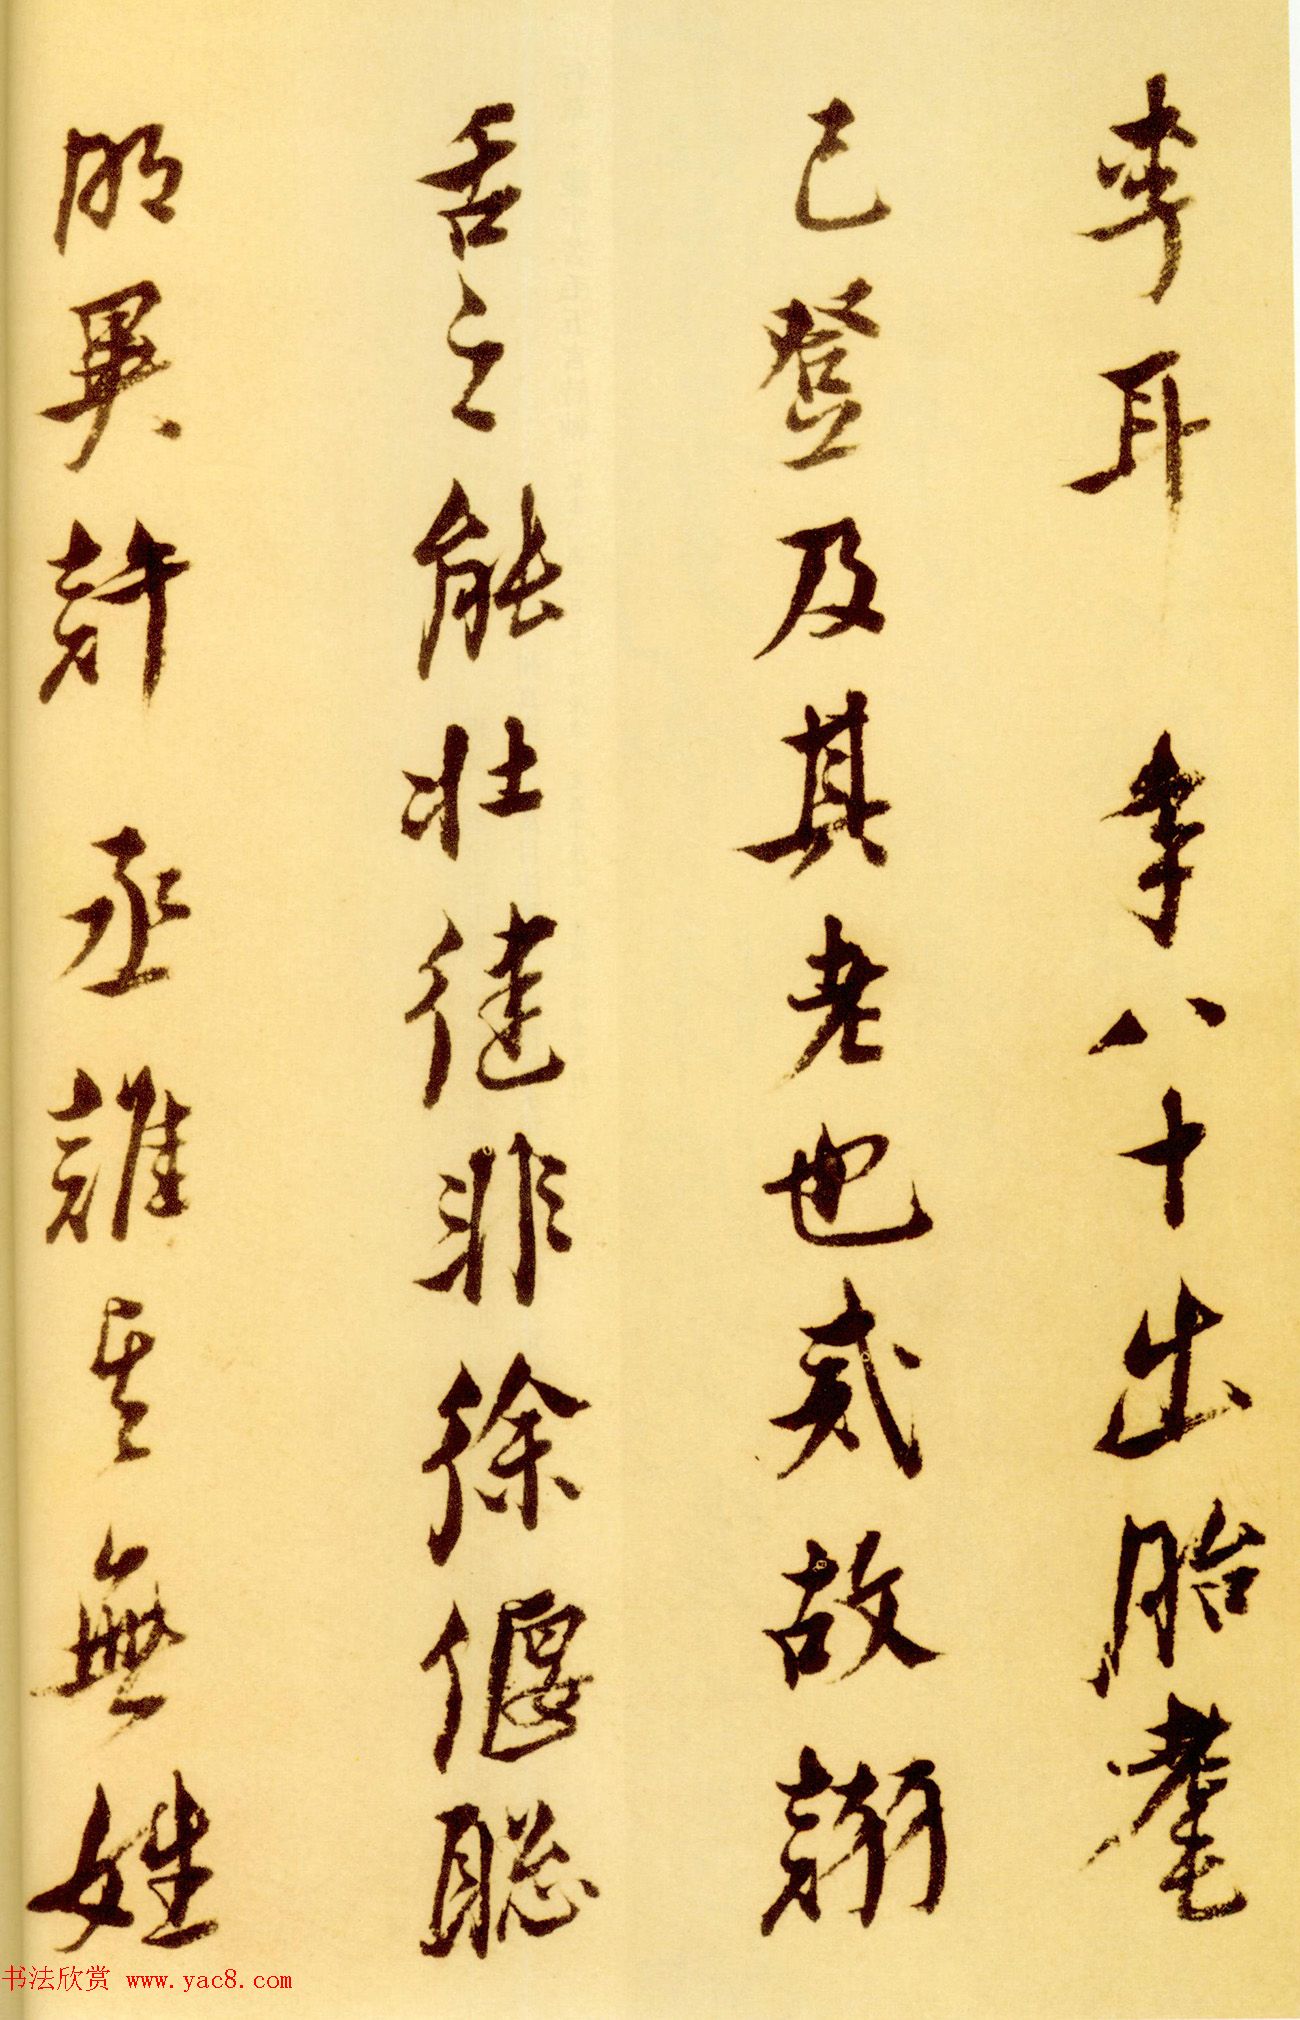 李耳 李八十出胎耄
已登及其老也貳故謝
舌之能壯徒非徐偃聰
明異許丞誰其無姓
书法欣赏 www.yac8.com